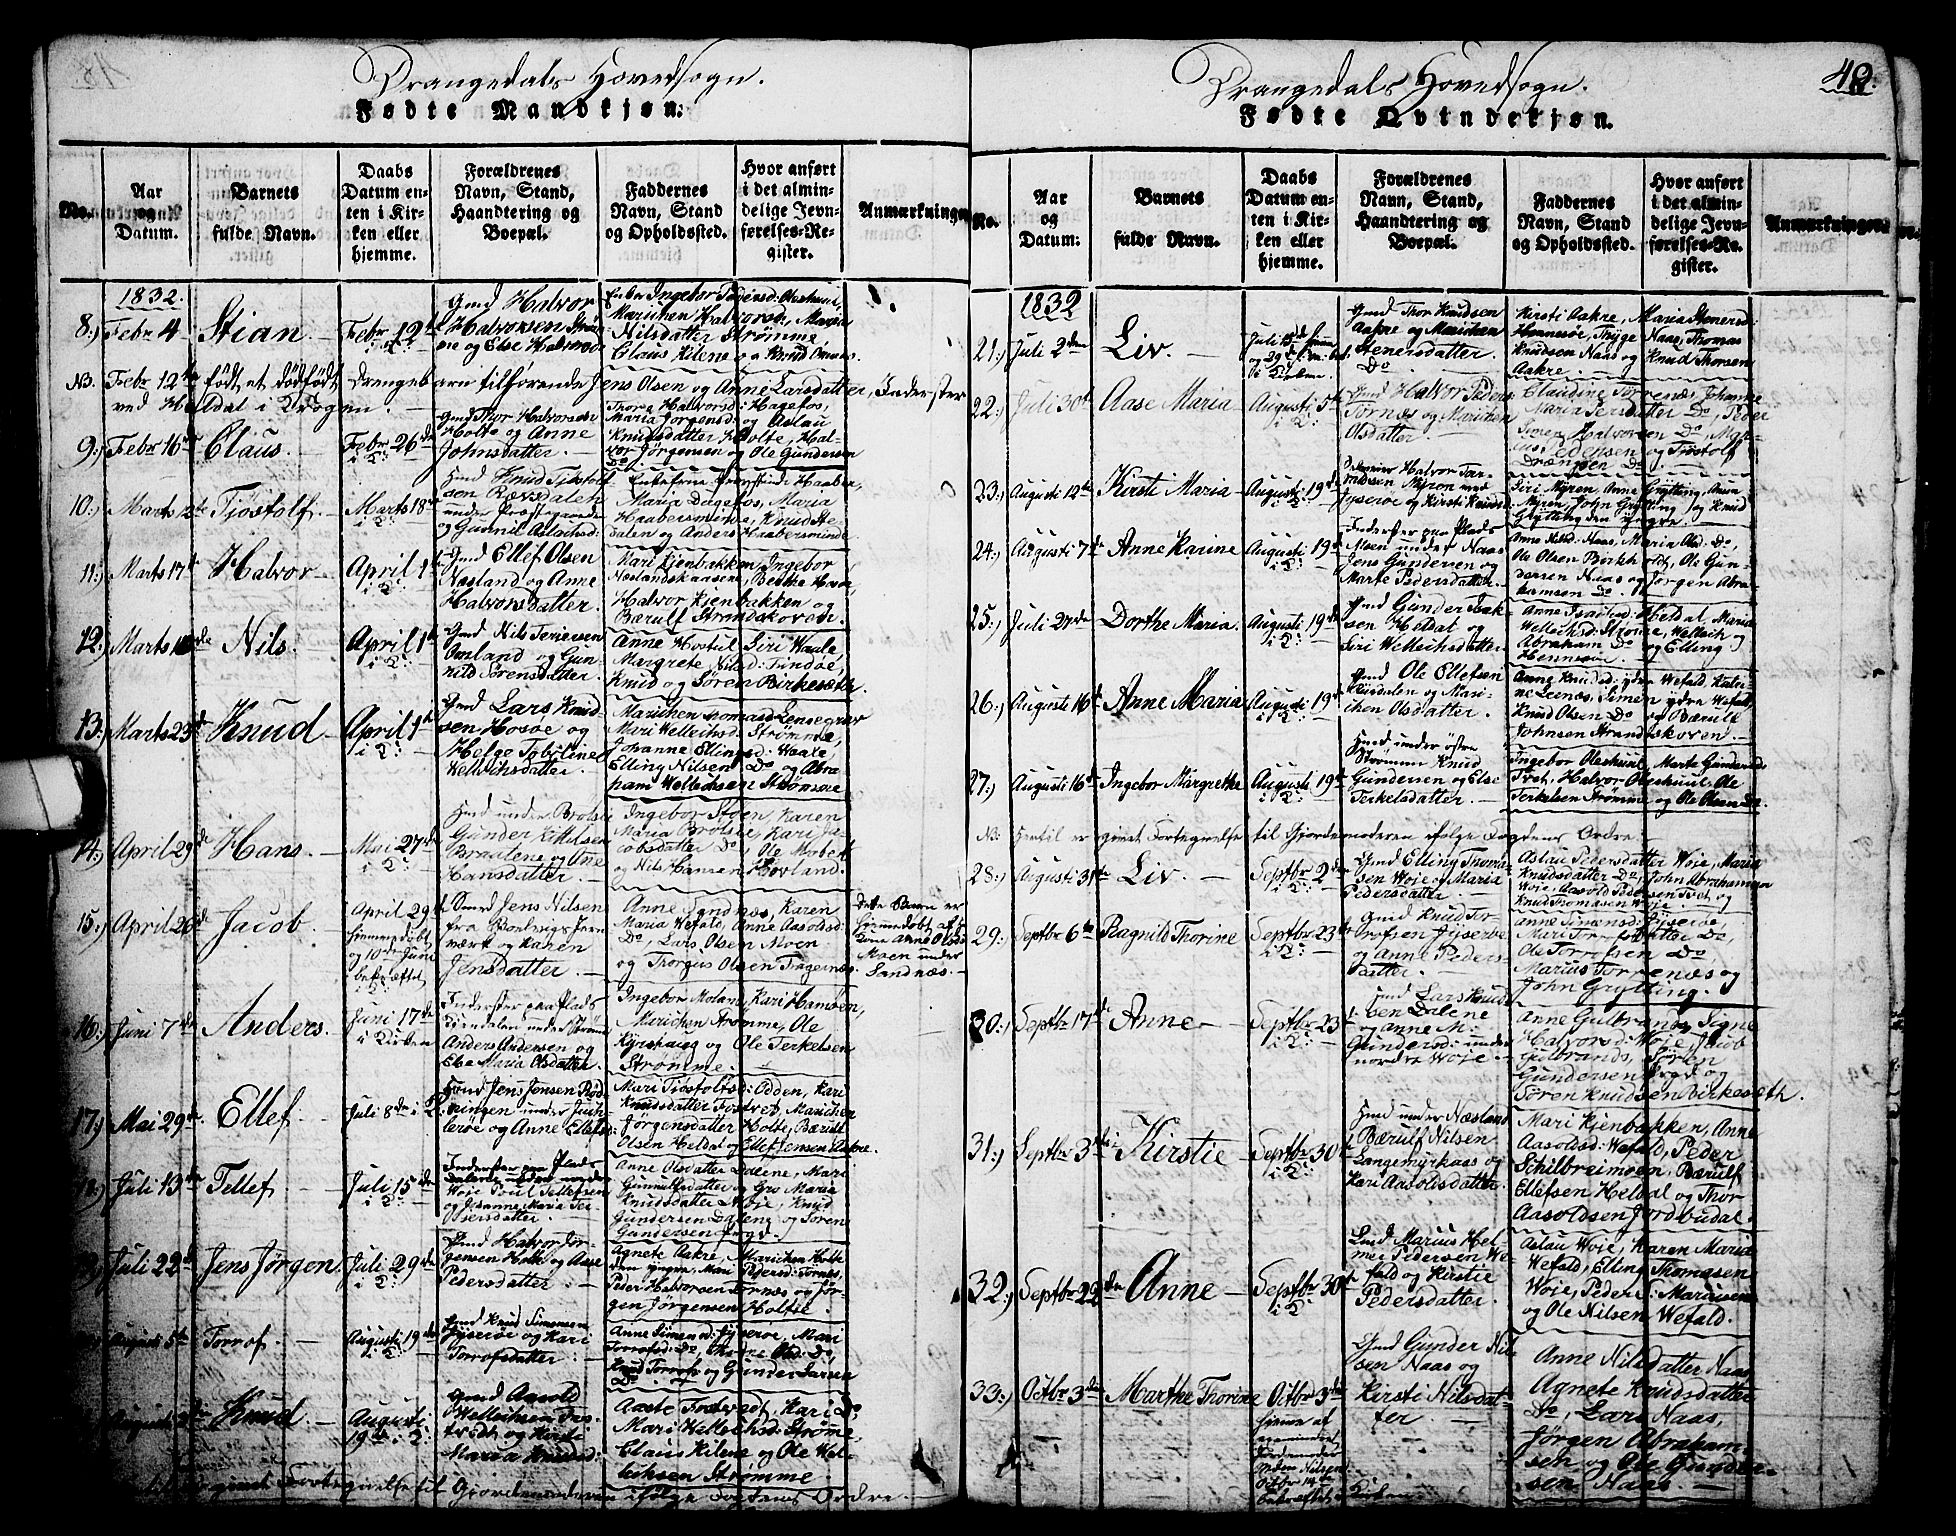 Drangedals Hovedsogn.
Fødte Mandkjøn.
No.
Aar
og
Datum.
Barnets
fulde Navn.
Daabs
Datum en-
ten i Kir-
ken eller
hjemme.
Forældrenes
Navn, Stand,
Haandtering og
Boepæl.
Faddernes
Navn, Stand
og Opholdssted.
Hvor anført
i det almin-
delige Jevn-
førelses-Re-
gister.
Anmærkninger
1832.
8.) Febr 4 Stian Febr 12te
Gmd Halvor
Halvorsen
og Else Halvorsd
Ingebor
Marichen Halvorsd., Maria
Nilsdatter Strømme,
Claus Kilene og Knud
NB. Febr 12te født et dødfødt Drengebarn tilhørende Jens Olsen og Anne Larsdatter, Inderster
ved Heldal i Drogen.
9.) Febr 16te Claus. Febr 26de
i D:
Gmd Thor Halvorsen
Holte og Anne
Johnsdatter.
Thore Halvorsd: Hagefos,
Maria Jørgensd: og Aslau
Knudsdatter Holte, Hal-
vor Jørgensen og Ole Gundersen
Do
10.) Marts Tjøstolf Marts 18de
i D:
Hmd Knud Tjøstolf
sen Rævsdalen
under Præstegaarden
og Gunnil Aslachsd:
Maria Dagefos, Maria
Haabersminde, Knud
Dalen og Anders Haabersminde
11.) Marts 17de Halvor April 1te
i D:
Gmd Ellef Olsen
Næsland og Anne
Halvorsdatter.
Mari Kjenbakken, Ingebor
Næslandskaasen, Berthe
Halvor Kjenbakken og
Bærulf Strandskoven.
12.) Marts Nils. April 1te
i D:
Gmd Nils Terjesen
Omland og Gun-
nild Sørensdatter.
Anne Hostul Siri Waale
Margrete Nilsd: Tindøe,
Knud og Søren Birkesæth.
13.) Marts 23de Knud April 1te
i D:
Gmd Lars Knud
sen Hosøe og
Helge Tobiline
Welleichsdatter.
Marichen Thomasd: Lensegrav
Mari Welleichsd: Strømme,
Johanne Ellingsd: Waale,
Elling Nilsen Do og Abra
ham Welleichsen Strømme
14.) April 29de Hans. Mai 27de
i D:
Hmd under Brotsøe
Gunder Kittilsen
Braatene og Ane
Hansdatter.
Ingebor Støen, Karen
Maria Brotsøe, Kari Ja-
cobsdatter Do, Ole
og Nils Hansen Hovland.
15.) April 26de Jacob.
April 29de
hjemmedøbt
og 10de Juni
bekræftet
Smed Jens Nilsen
fra Boelvigs Jern
værk og Karen
Jensdatter
Anne Sandnæs, Karen
Maria Wefald, Anne Aasoldsd:
Do, Lars Olsen Moen
og Thorgius Olsen Tragernæs.
Dette Barn er
hjemmedøbt af
Kone Anne Olsd
Moen under
Sandnæs.
16.) Juni 7de Anders.
Juni 17de
i Kirken
Inderster paa Plads
under Strømme
Anders Andersen og
Else Maria Olsdatter
Ingebor Molan, Kari Hamsen,
Marichen Strømme, Ole
Kjirshaug og Ole Terkelsen
Strømme.
17.) Mai 29de Ellef. Juli 8de i D:
Hmd Jens Jensen Rød
ningen under
og Anne Ellefsd:
Mari Tjøstolfsd: Odden, Kari
Knudsdatter Tostved, Marichen
Jørgensdatter Holte, Bærulf
Olsen Heldal og Ellef Jensen Aakre.
18.) Juli 13de Tellef Juli 15de
i D:
Inderster paa Plads
Dalene under nordre
Woje Poul Tellefsen
og Johanne Maria
datter.
Anne Olsdatter Dalene, Mari
Gunnulfsdatter og Gro Maria
Knudsdatter Woje, Knud
Gundersen Daleng og Søren
Gundersen
19.) Juli 22de Jens Jørgen Juli 29de
i D:
Gmd Halvor Jør-
gensen Holte og Aase
Pedersdatter
Agnete Aakre, Marichen Holte
den yngre, Mari Pedersd: Tornes,
Peder Halvorsen Tornæs og Jør-
gen Jørgensen Holte.
Augusti 5te Torrof. Augusti 19de
i D:
Gmd Knud Simonsen
Jyserøe og Kari
Torrofsdatter
Anne Simensd: Jyserøe, Mari
Torrofsd: Do, Olsd: Do,
Knud Torrofs og Gunder Larsen
Do
Augusti Knud
Augusti
19de i D:
Gmd Aasold
Welleichsen Tos-
tvedt og Kirsti
Maria Knudsd:
Aaste Tostvedt, Kari Do
Mari Welleichsd: Strøme,
Claus Kilene og Ole Wel-
leichsen Strømme.
givet Fortegnelse til Gjordemoderen ifølge Fogdens Ordre.
Drangedals Hovedsogn.
49.
Fødte Qvindekjøn.
No.
Aar
og
Datum:
Barnets
fulde Navn.
Daabs
Datum en-
ten i Kir-
ken eller
hjemme.
Forældrenes
Navn, Stand,
Haandtering og
Boepæl.
Faddernes
Navn, Stand
og Opholdssted.
Hvor anført
i det almin-
delige Jevn-
førelses-Re-
gister.
Anmærkninger
1832
21.) Juli 2den Liv.
Juli 15de hjem
og 29de
i Kirken
Gmd Thor Knudsen
Aakre og Marichen
Stenersdatter.
Do
Kirsti Aakre, Maria Stenersd:
Hennesøe, Thyge Naas, Thomas
Knudsen Naas og Knud Thorsen
Aakre.
22.) Juli 30te Aase Maria Augusti 5te
i D:
Gmd Halvor Peders
Tornæs og Marichen
Olsdatter.
Claudine Torrenes, Johanne
Maria Persdatter Do, Peder
Søren Halvorsen Do, Mar-
ius Pedersen og Tjøstolf
Drængsen Do
23.) Augusti 12te Kirsti Maria Augusti 19de
i D:
Halvor Tor-
Myren med
Jyserøe og Kirsti Knudsd
Siri Myren, Anne Grytting, Anne
Myren, John Grytting og Knud
Grytting den yngre
24.) Augusti 7de Anne Karine Augusti 19de
i D:
Inderster paa Plads
Moen under Naas
Jens Gundersen og
Marte Pedersdatter.
Anne Kiilsd: Naas, Maria Olsd: Do,
Ole Olsen Birkholdt, Ole Gun-
dersen Naas og Jørgen Abra
hamsen Do
25.) Juli 27de Dorthe Maria Augusti 19de
i D:
Gmd Gunder Isak
sen Heldal og
Siri Welleichsdatter
Anne Isacksd: Heldal, Maria
Welleichsd: Strøme, Welleich og
Abraham Do og Elling
Hennesøe.
26.) Augusti 16de Anne Maria Augusti 19de
i D:
Gmd Ole Ellefsen
og Mari-
ichen Olsdatter.
Anne Knudsd: ydre Wefald, Katri-
ne Leenæs, Simen ydre Wefald,
Knud Olsen Do og Bærulf
Johnsen Strandskoven.
27.) Augusti 16de Ingebor Margrethe Augusti 19de
i D:
Hmd under østre
Strømme Knud
Gundersen og Else
Terkelsdatter.
Ingebor Oleshuul, Marte Gundersd:
Tvet, Halvor Oleshuul, Ole
Terkelsen Strømme og Ole Olsen Do.
NB: Hertil er givet Fortegnelse til Gjordemoderen ifølge Fogdens Ordre.
28.) Augusti 31te Liv. Septbr 2de
i D:
Gmd Elling Thoma
sen Woje og Maria
Pedersdatter
Aslau Pedersdatter Woje, Maria
Knudsdatter Do, John Abrahamsen
Woje, Aasold Pedersen Tvet og
Knud Thomasen Woje
29.) Septbr 6te Ragnild Thorine Septbr 23de
i D:
Gmd Knud Tor-
rofsen Jyserøe
og Anne Peders-
datter.
Anne Simensd: Jyserøe,
Mari Torrofsdatter Do,
Ole Torrofsen Do,
Marius Torrenæs og
John Grytting.
30.) Septbr 17de Anne Septbr 23de
i D:
Hmd Lars Knud
sen Dalene
og Anne M:
Gundersd: under
nordre Woje
Anne Gulbrands, Signe
Halvorsd: Woje, Jacob
Gulbrands, Søren
Gundersen og
Søren Knudsen Birkesæth.
31.) Septbr 3die Kirstie Septbr 30te
i D:
Hmd under Næsland
Bærulf Nilsen
Langemyrkaas og
Kari Aasoldsdatter.
Mari Kjenbakken, Anne
Aasoldsd: Wefald, Peder
Schilbreimoen, Bærulf
Ellefsen Heldal og Thor
Aasoldsen Jordbudal.
32.) Septbr 22de Anne Septbr 30te
i D:
Gmd Marius Hel
mer Pedersen We
fald og Kirstie
Pedersdatter.
Aslau Woje, Karen Maria
Wefald, Elling Thomasen
Woje, Peder Mariusen
og Ole Nilsen Wefald.
33.) Octbr 3de Marthe Thorine
Octbr 3de
hjemme af
Nilsen
Octbr 14de
bekræftet i Kirken
Gmd Gunder Nil
sen Naas og
Kirsti Nilsdat-
ter.
Anne Nilsdatter Naas
Agnete Knudsdatter
Do, Lars Naas,
Jørgen Abraham-
sen og Ole Gunder-
sen Naas.